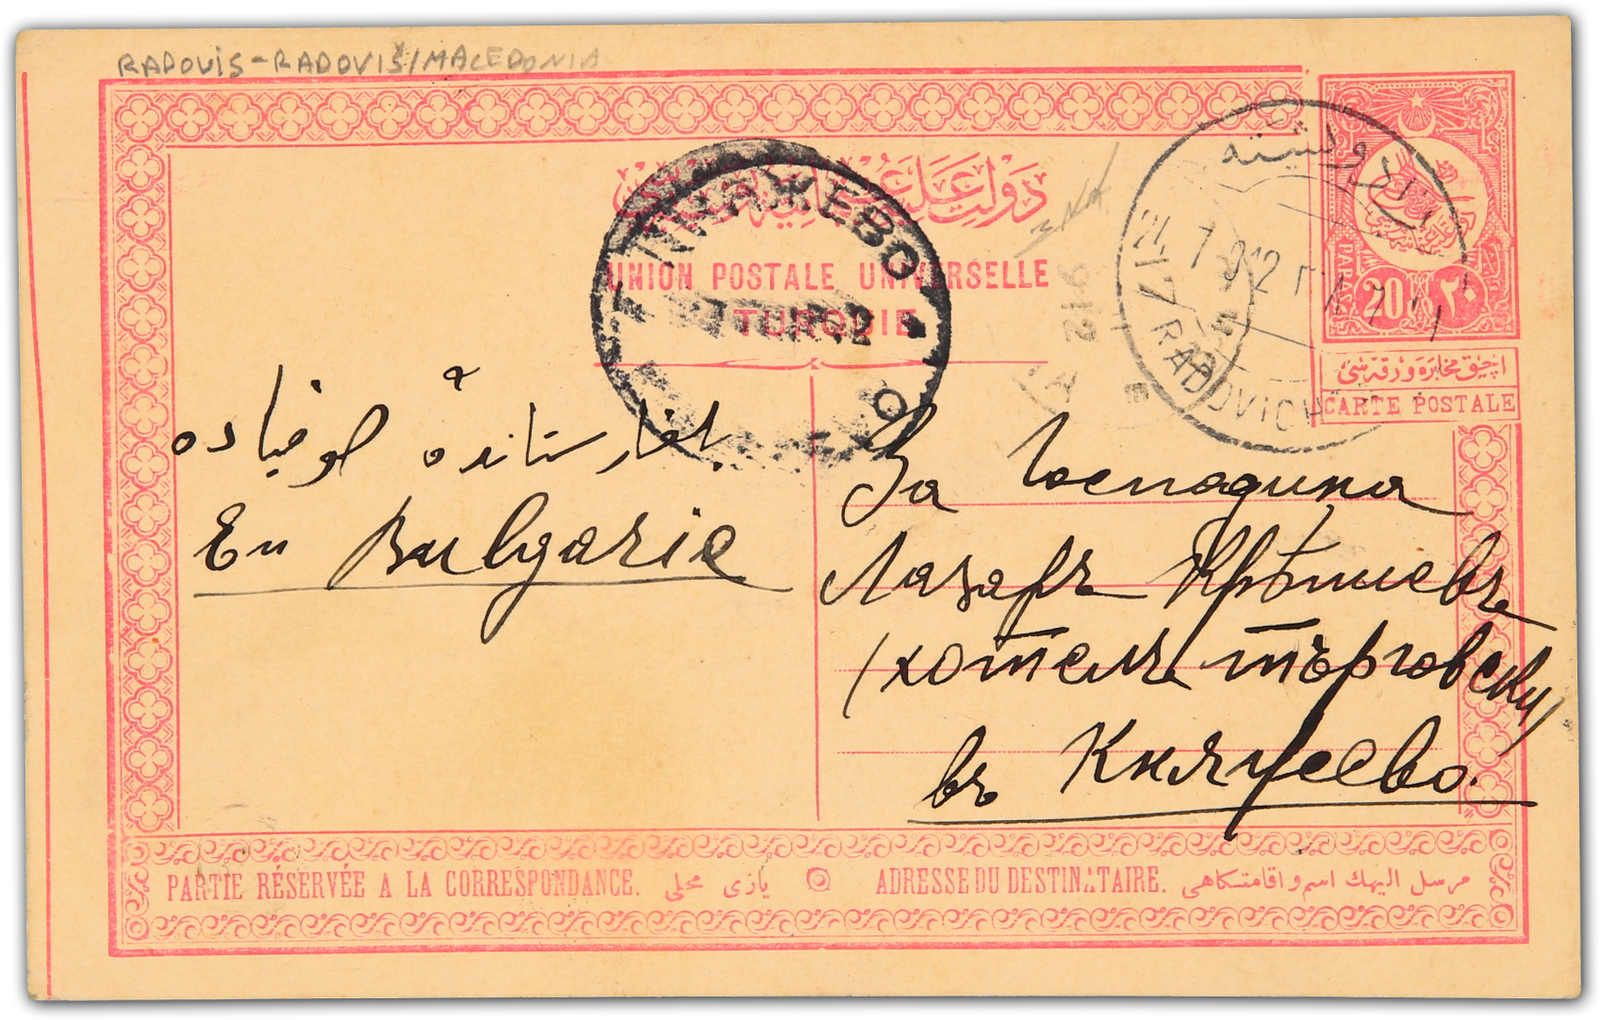 RADOVIS-RADOVIŠ/MACEDONIA
دولت علیه عثمانیه
UNION POSTALE UNIVERSELLE
TURQUIE
20 PARAS ٢٠
آچیق مخابره ورقه‌سی
CARTE POSTALE
24 7 912
RADOVICH
912
КНЯЖЕВО
بلغارستانده صوفیاده
En Bulgarie
За Господина
Лазаръ Крѣпиевъ
(хотелъ търговски)
въ Княжево.
PARTIE RÉSERVÉE A LA CORRESPONDANCE. یازی محلی
ADRESSE DU DESTINATAIRE. مرسل الیهك اسم و اقامتكاهی